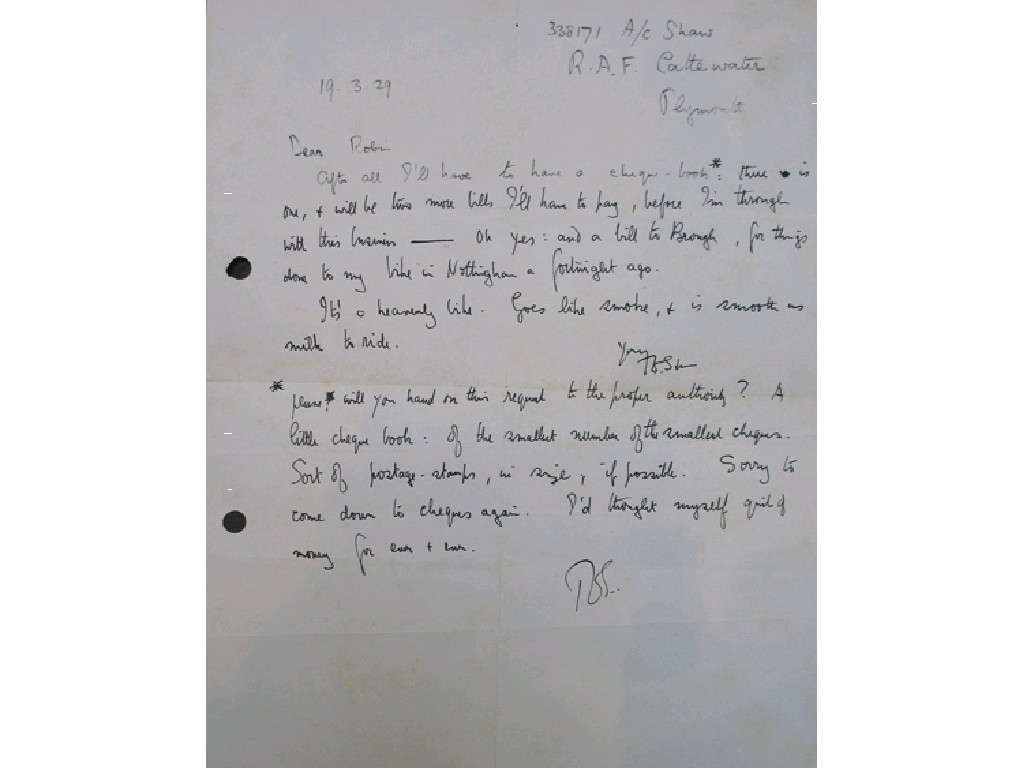 338171 A/c Shaw
R.A.F. Cattewater
Plymouth
19.3.29
Dear Robin
After all I'll have to have a cheque-book*: there is
one, & will be two more bills I'll have to pay, before I'm through
with this business — Oh yes: and a bill to Brough, for things
done to my bike in Nottingham a fortnight ago.
It's a heavenly bike. Goes like smoke, & is smooth as
milk to ride.
Yours
T.E.Shaw
* please will you hand on this request to the proper authority? A
little cheque book: of the smallest number of the smallest cheques.
Sort of postage-stamps, in size, if possible. Sorry to
come down to cheques again. I'd thought myself quit of
money for ever & ever.
TES.